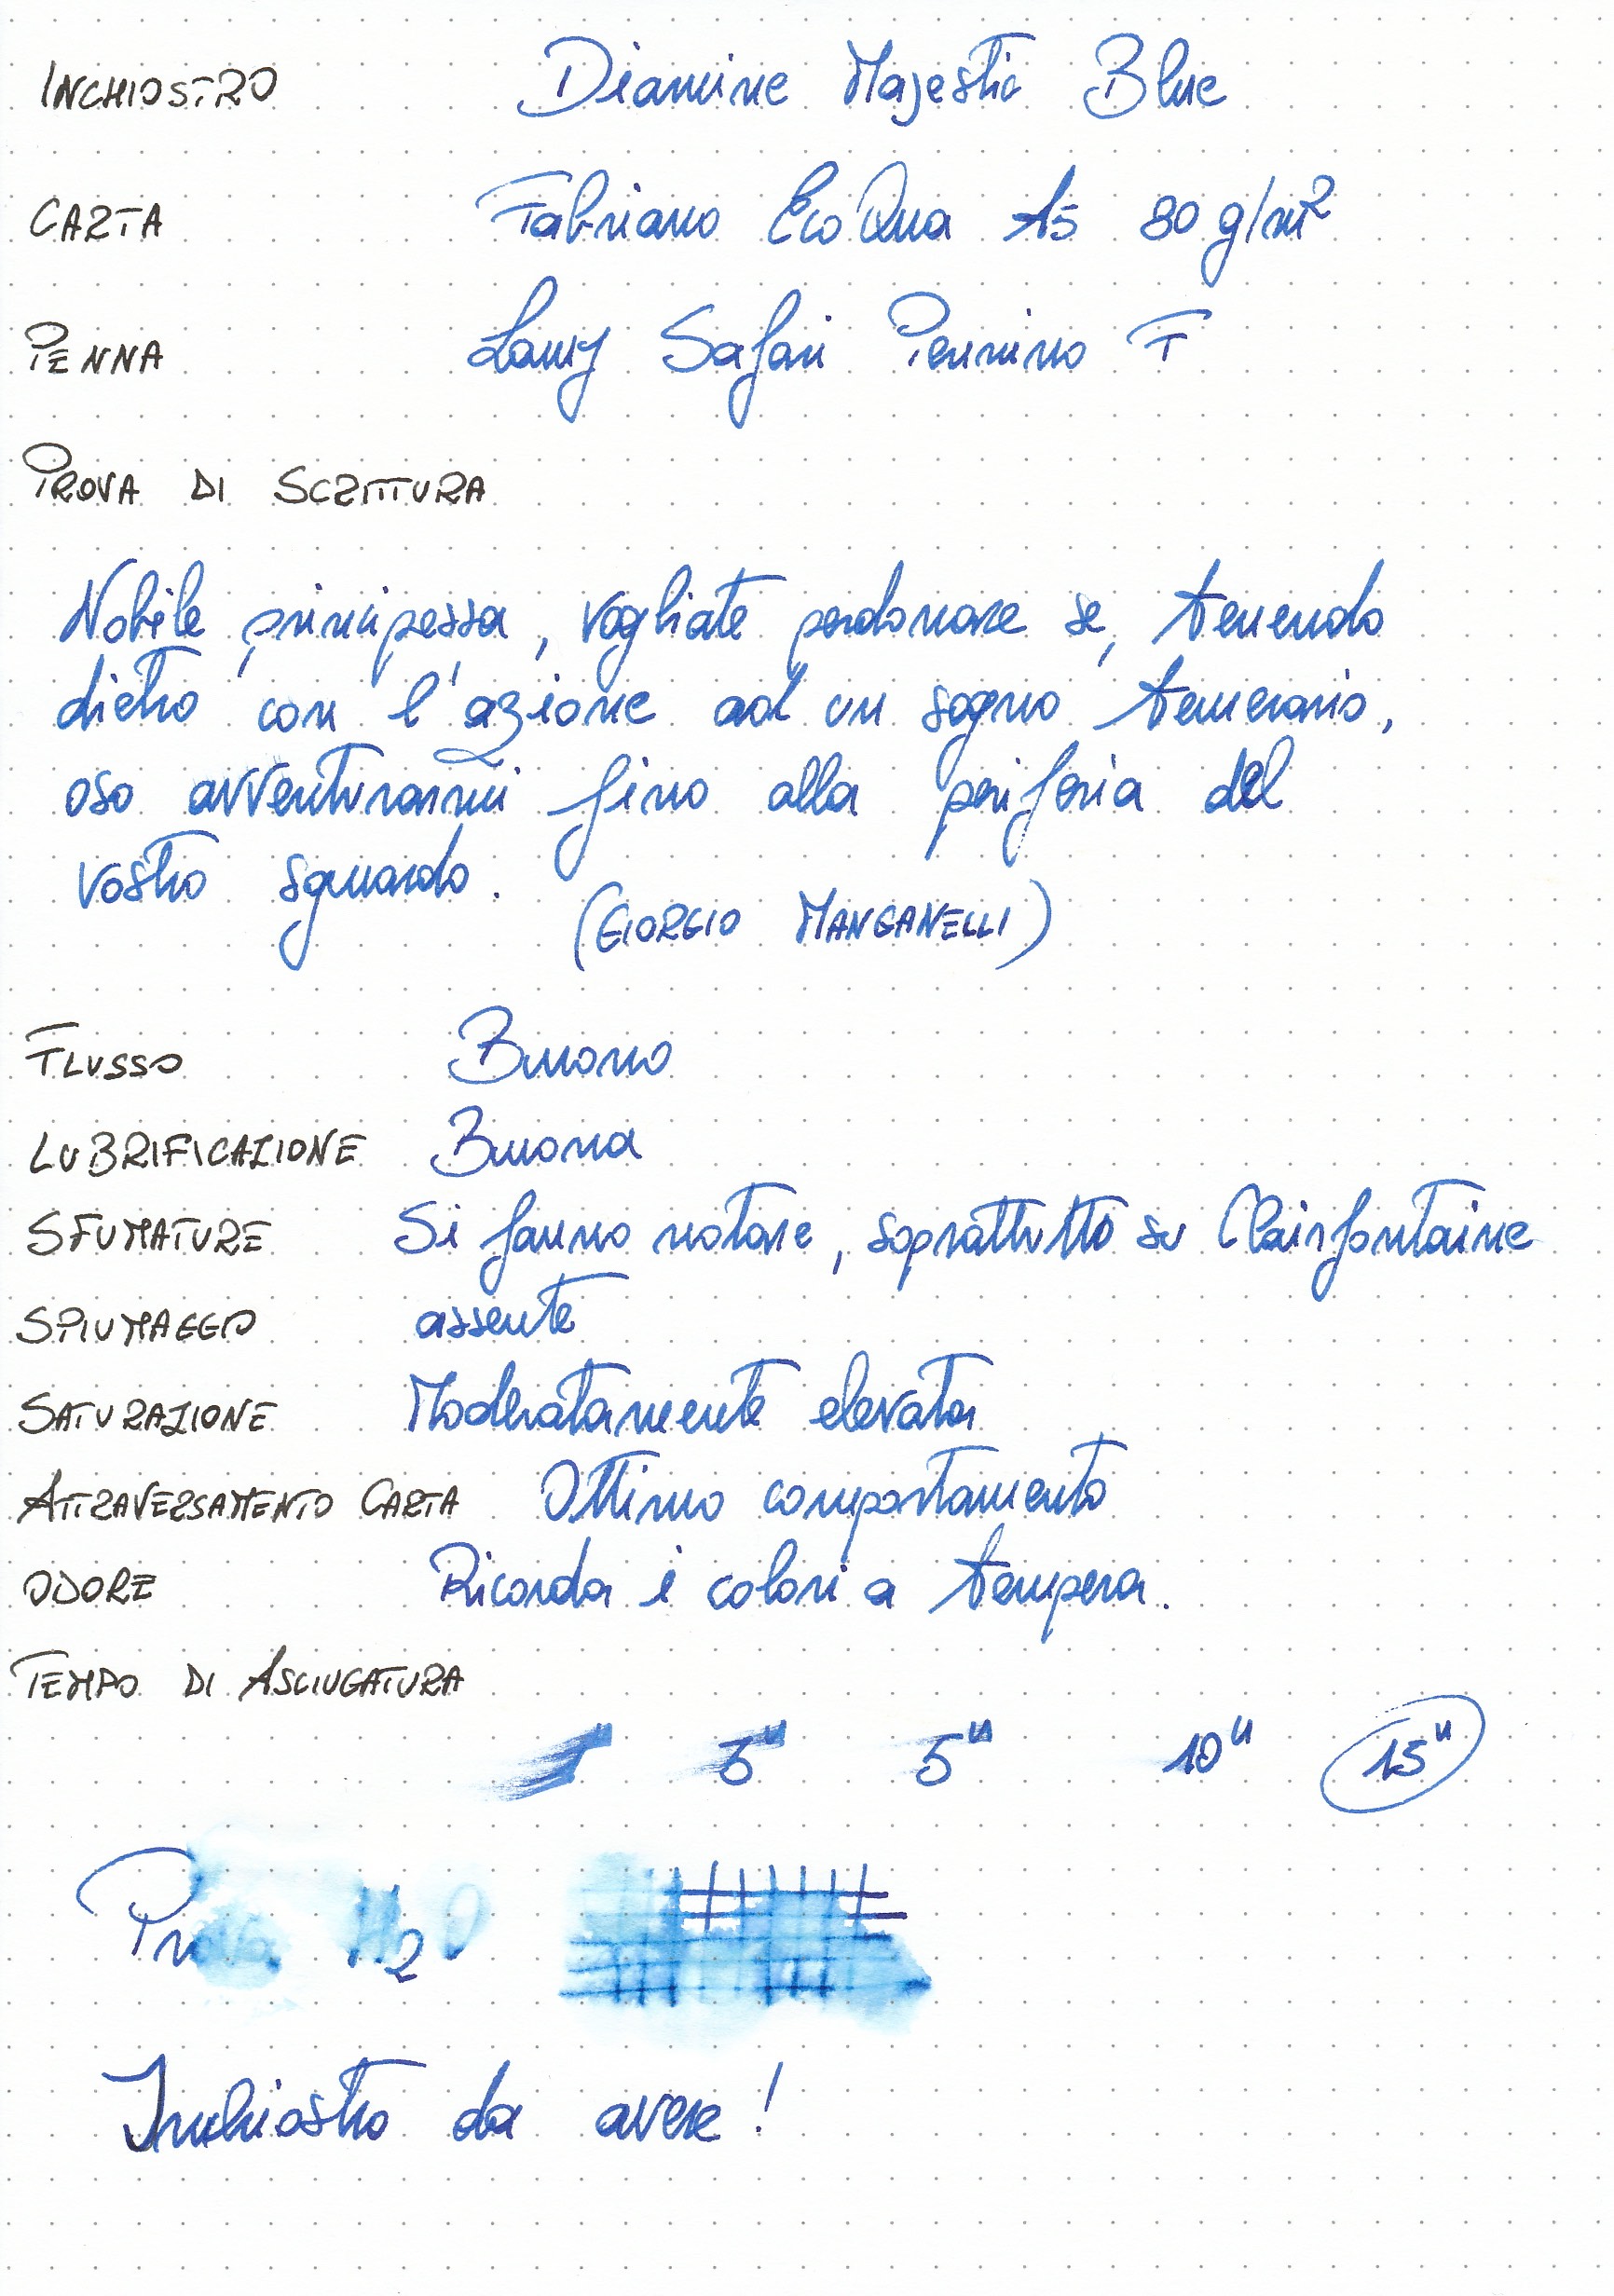 INCHIOSTRO Diamine Majestic Blue
CARTA Fabriano EcoQua A5 80 g/m²
PENNA Lamy Safari Pennino F
PROVA DI SCRITTURA
Nobile principessa, vogliate perdonare se, tenendo
dietro con l'azione ad un sogno temerario,
oso avventurarmi fino alla periferia del
vostro sguardo.
(GIORGIO MANGANELLI)
FLUSSO Buono
LUBRIFICAZIONE Buona
SFUMATURE Si fanno notare, soprattutto su Clairfontaine
SPIUMAGGIO assente
SATURAZIONE Moderatamente elevata
ATTRAVERSAMENTO CARTA Ottimo comportamento
ODORE Ricorda i colori a tempera.
TEMPO DI ASCIUGATURA
1" 3" 5" 10" 15"
Prova H2O
Inchiostro da avere!